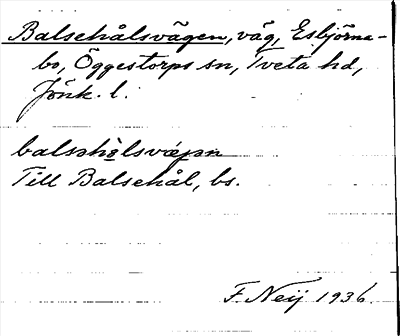 Balsehålsvägen, väg, Esbjörna-
bo, Öggestorps sn, Tveta hd,
Jönk. l.
Till Balsehål, bs.
F. Neij 1936.